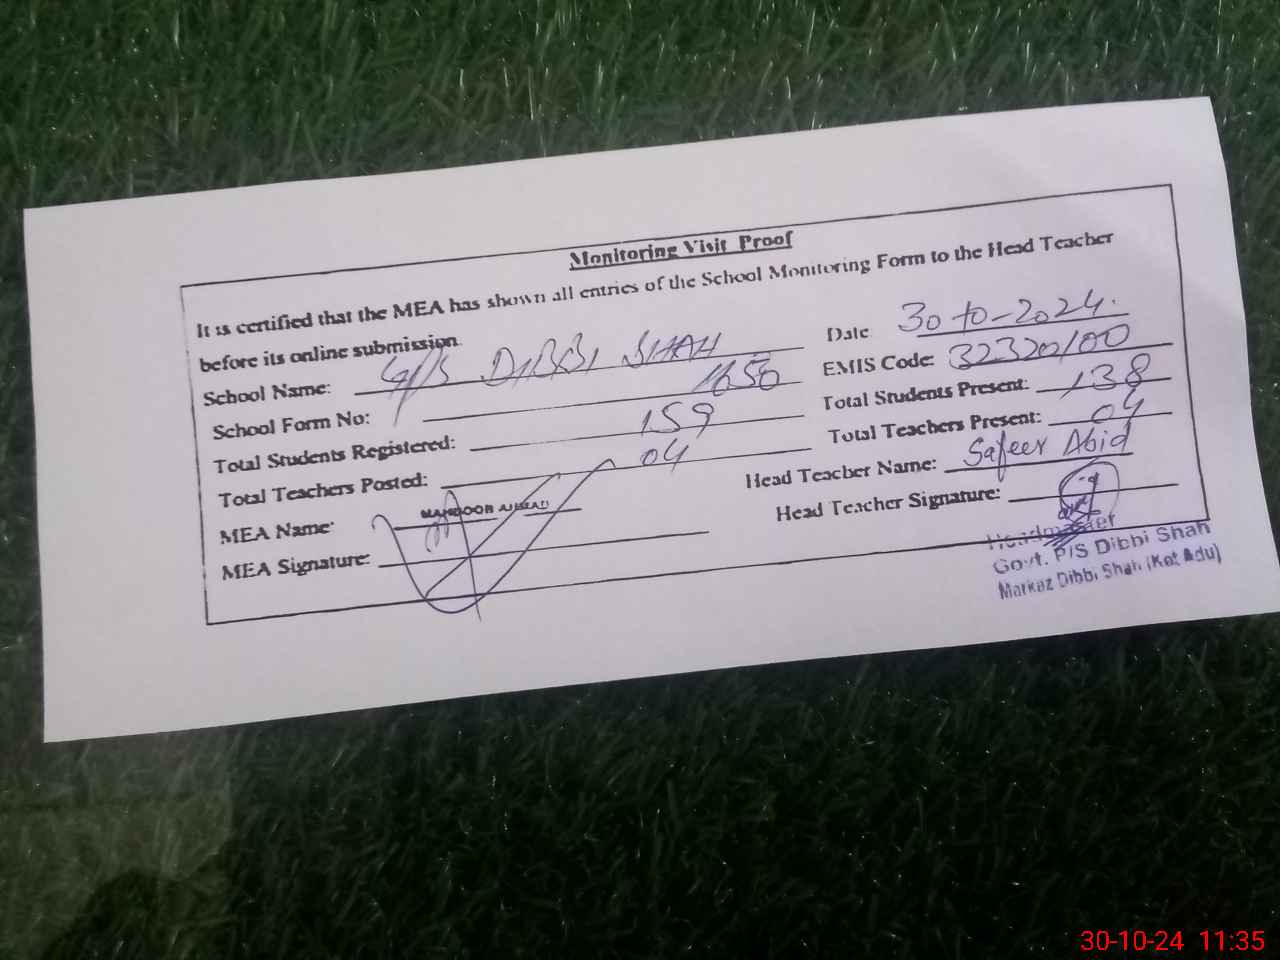 Monitoring Visit Proof
It is certified that the MEA has shown all entries of the School Monitoring Form to the Head Teacher
before its online submission.
Date 30-10-2024.
School Name: G/P/S DIBBI SHAH
EMIS Code: 32320100
School Form No: 1650
Total Students Present: 138
Total Students Registered: 159
Total Teachers Present: 04
Total Teachers Posted: 04
Head Teacher Name: Safeer Abid
MEA Name: AHMAD
Head Teacher Signature:
MEA Signature:
Headmaster
Govt. P/S Dibbi Shah
Markaz Dibbi Shah (Kot Adu)
30-10-24 11:35